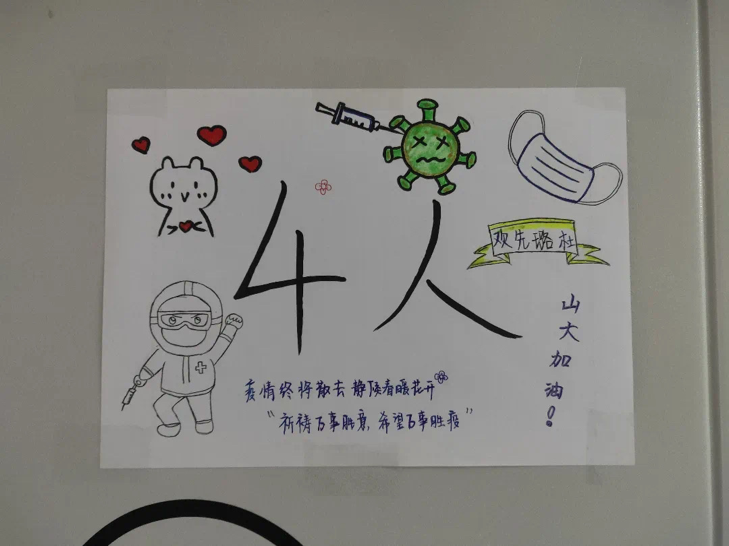 4人
观先璐杜
山大加油!
疫情终将散去 静候春暖花开
“祈祷万事胜意,希望万事胜疫”